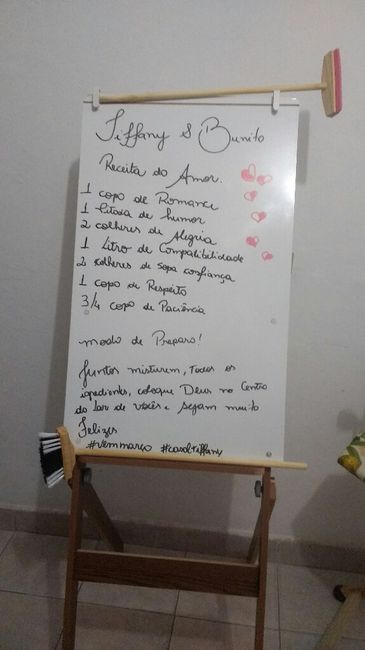 Tiffany & Bunito
Receita do Amor.
1 copo de Romance
1 Pitada de humor
2 colheres de Alegria
1 Litro de Compatibilidade
2 colheres de sopa confiança
1 copo de Respeito
3/4 copo de Paciência
modo de Preparo!
Juntos misturem, todos os
igredientes, coloque Deus no Centro
do lar de vocês e sejam muito
Felizes
#vemmarço #casaltiffany